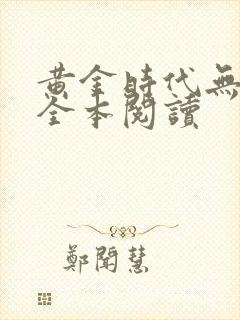 黃金時代無
全本閱讀
鄭聞慧